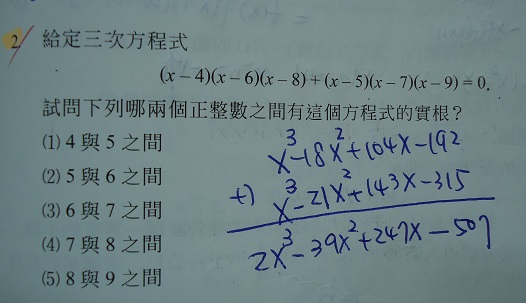 2. 給定三次方程式
(x−4)(x−6)(x−8)+(x−5)(x−7)(x−9)=0.
試問下列哪兩個正整數之間有這個方程式的實根？
(1) 4 與 5 之間
(2) 5 與 6 之間
(3) 6 與 7 之間
(4) 7 與 8 之間
(5) 8 與 9 之間
x³−18x²+104x−192
+) x³−21x²+143x−315
2x³−39x²+247x−507